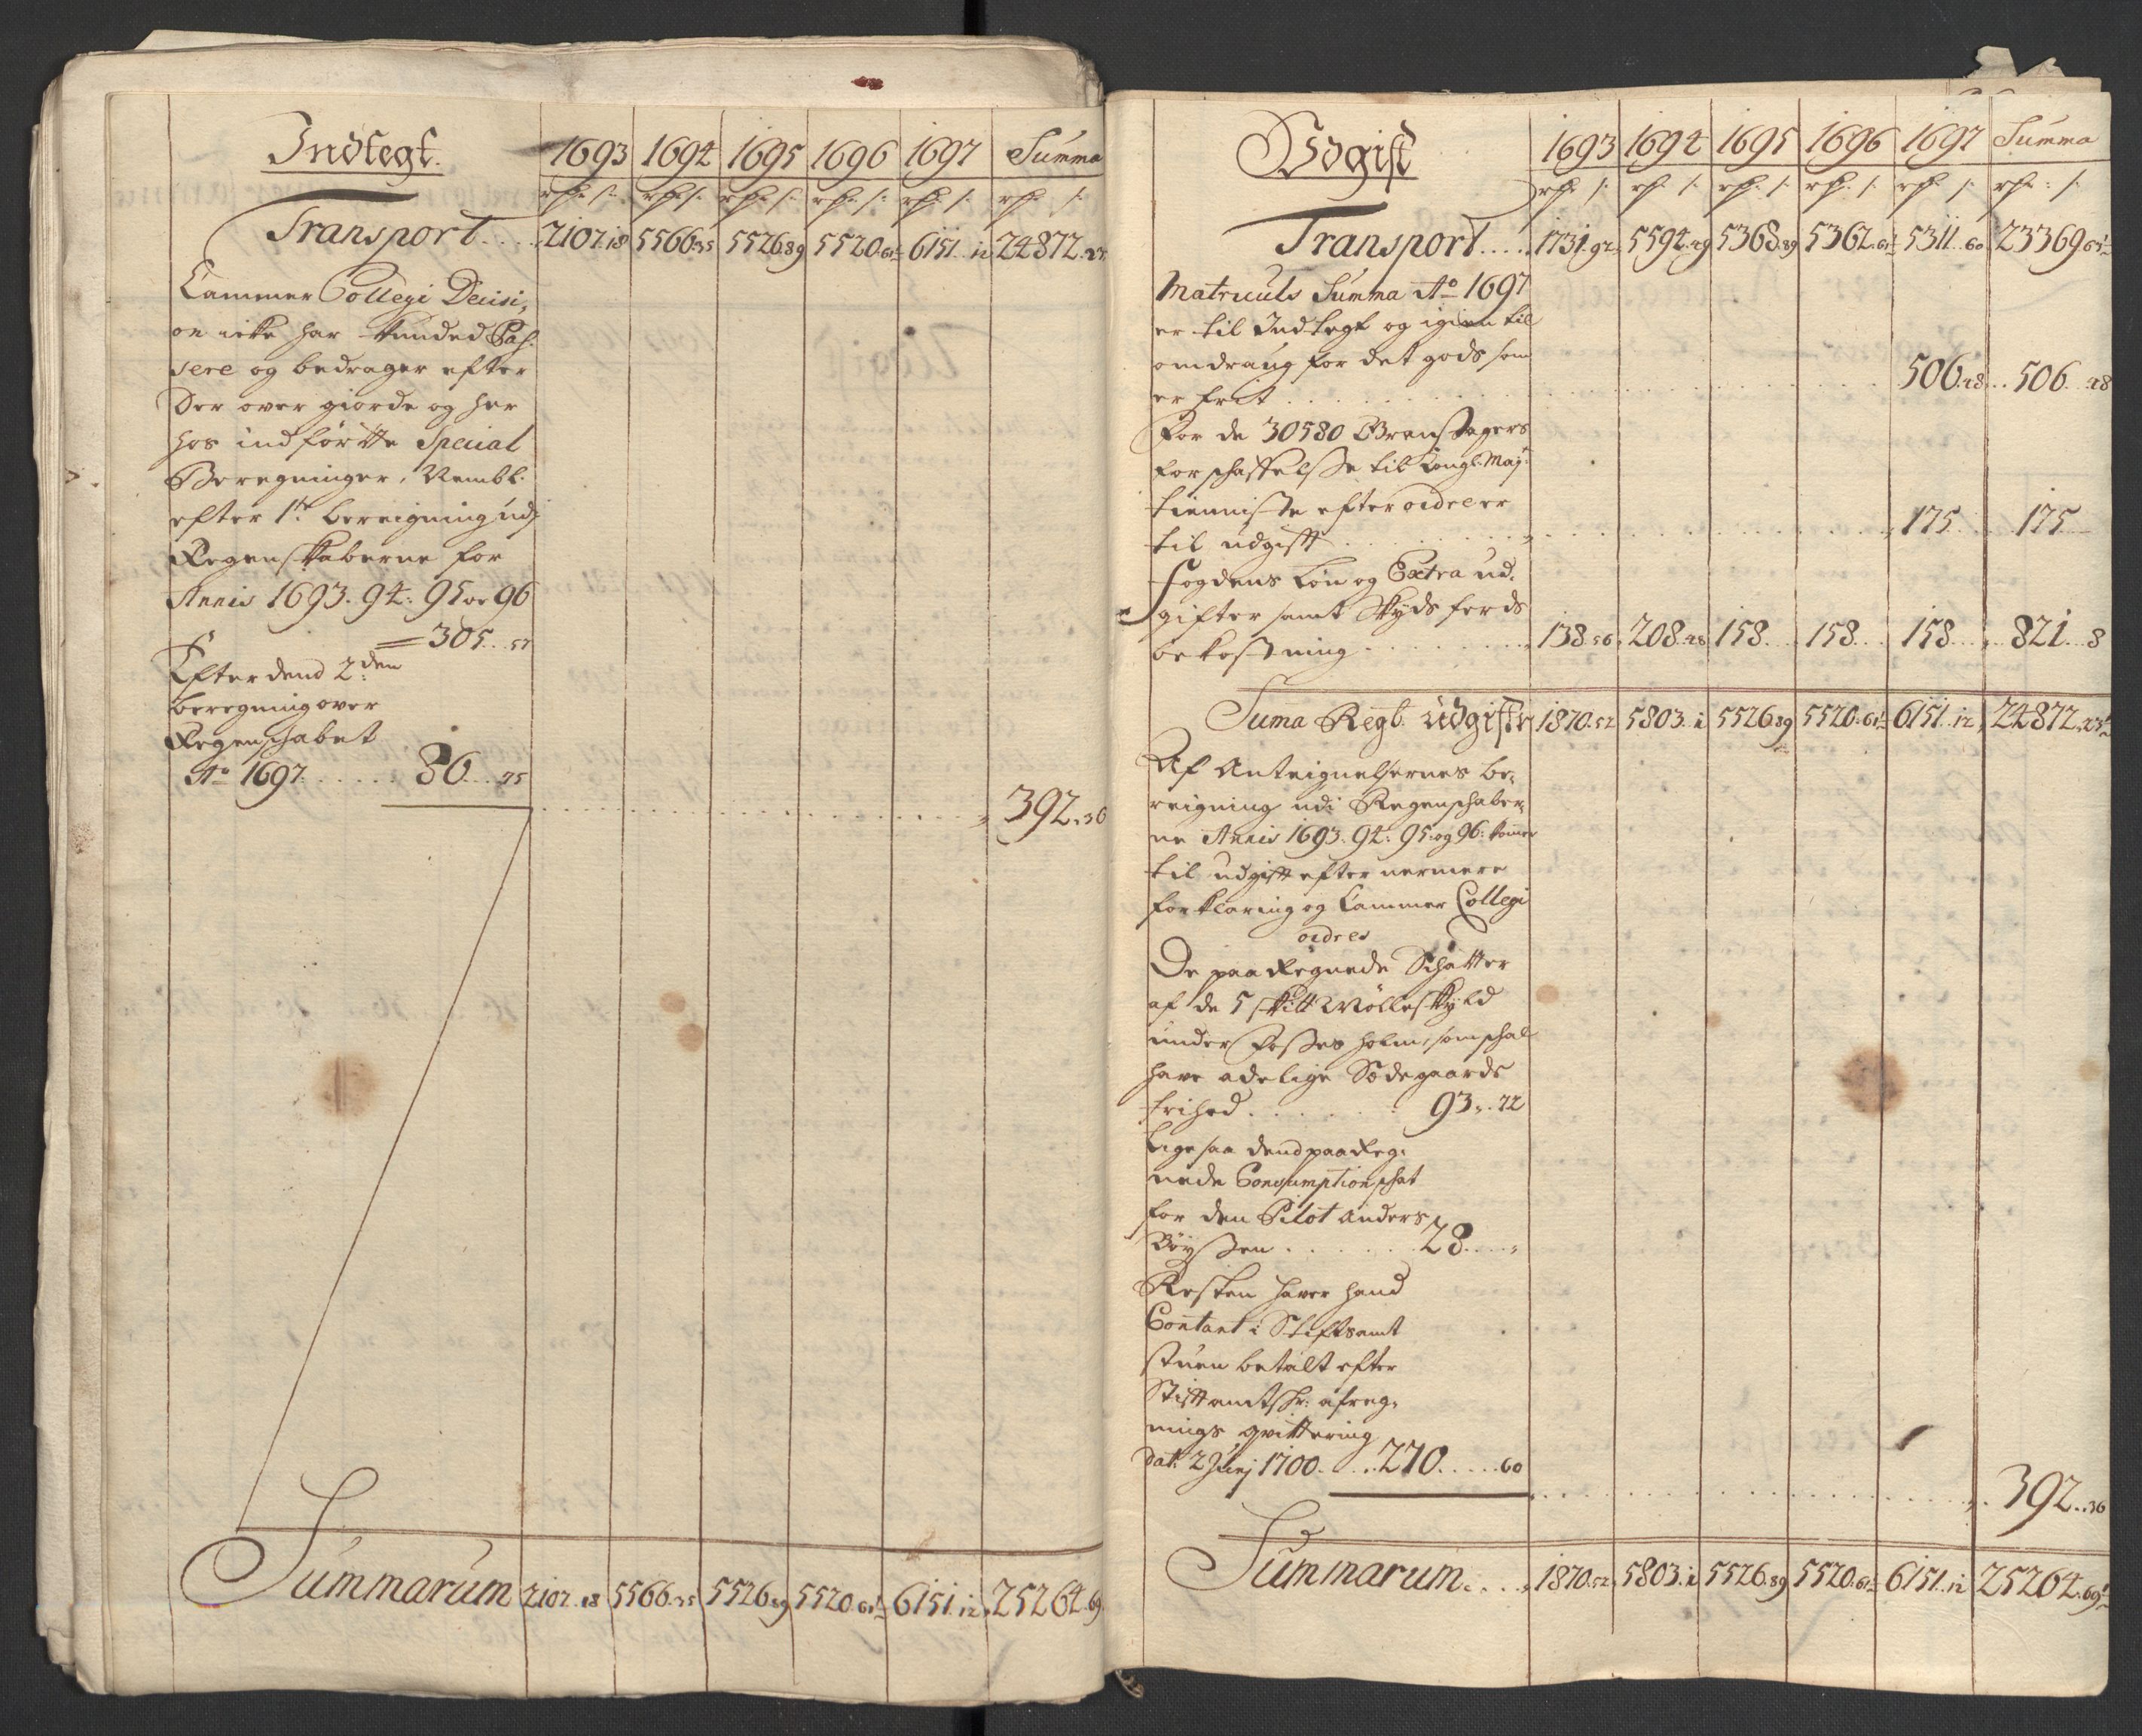 Indtegt.
1693 1694 1695 1696 1697 Summa
rdr: s: rdr: s: rdr: s: rdr: s: rdr: s: rdr: s:
Transport.... 2107.18 5566.35 5526.89 5520.61½ 6151..12 24872.23½
Cammer Collegi Decisi,
on icke har kunded Pas-
sere og bedrager efter
Der over giorde og her
hos indførtte Special
Beregninger, Nembl.
efter 1te bereigning udj
Regenskaberne for
Annis 1693. 94: 95 og 96
= 305..57
Efter dend 2den
beregning over
Regenschabet
Ao 1697...... 86...75
392.36
Summarum 2107.18 5566.35 5526.89 5520.61½ 6151.12 25264.69
Udgift
1693 1694 1695 1696 1697 Summa
rdr: s: rdr: s: rdr: s: rdr: s: rdr: s: rdr: s:
Transport.... 1731.92 5594.49 5368.89 5362.61½ 5311..60 23369.63½
Matriculs Summa Ao 1697
er til Indtegt og igien til
omdraug for det gods som
er frit ........ 506.48 .. 506..48
For de 30580 Grenstagers
forschaffelsse til Kongl. Maj:
tienniste efter ordre er
til udgift ........ 175... 175
Fogdens Løn og Extra ud,
gifter samt skydsferds
bekostning ....... 138.56 208.48 158... 158... 158... 821...8
Suma Regl. udgifter 1870.52 5803.1 5526.89 5520.61½ 6151..12 24872.23½
Af Anteignelsernes be,
reigning udi Regenschaber,
ne Annis 1693. 94. 95. og 96. komer
til udgift efter nermere
forklaring og Cammer Collegi
ordres
De paa Regnede Schatter
af de 5 skilt Mølleskyld
under Fosses holm, som schal
have adelige Sædegaards
frihed ....... 93..72
Lige saa dend paa Reg,
nede Consumption schat
for den Pilot Anders
Bøyssen ...... 28....
Resten haver hand
Contant i Stiftsamt
stuen betalt efter
Stiftamtskr: afreg,
nings qvittering
dat: 2 Junj 1700.... 270.....60
392..36
Summarum.... 1870.52 5803.1 5526.89 5520.61½ 6151..12 25264.69½